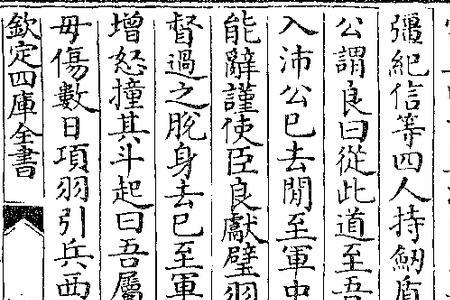 彊紀信等四人持劒盾
公謂良曰從此道至吾
入沛公已去閒至軍中
能辭謹使臣良獻璧羽
督過之脫身去已至軍
增怒撞其斗起曰吾屬
毋傷數日項羽引兵西
欽定四庫全書